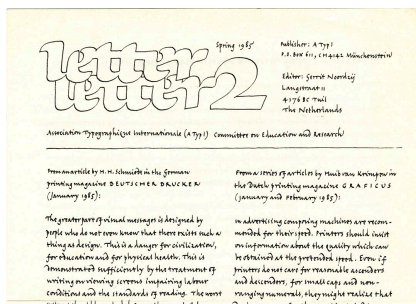 letter
letter2
Spring 1985
Publisher: ATypI
P.O. Box 611, CH4142 Münchenstein
Editor: Gerrit Noordzij
Langstraat 11
4176BC Tuil
The Netherlands
Association Typographique Internationale (ATypI) Committee on Education and Research
From an article by H.H. Schmidt in the German
printing magazine DEUTSCHER DRUCKER
(January 1985):
The greater part of visual messages is designed by
people who do not even know that there exists such a
thing as design. This is a danger for civilization,
for education and for physical health. This is
demonstrated sufficiently by the treatment of
writing on viewing screens impairing labour
conditions and the standards of reading. The worst
From a series of articles by Huib van Krimpen in
the Dutch printing magazine GRAFICUS
(January and February 1985):
In advertising composing machines are recom-
mended for their speed. Printers should insist
on information about the quality which can
be obtained at the pretended speed. Even if
printers do not care for reasonable ascenders
and descenders, for small caps and non-
ranging numerals, they might realize that